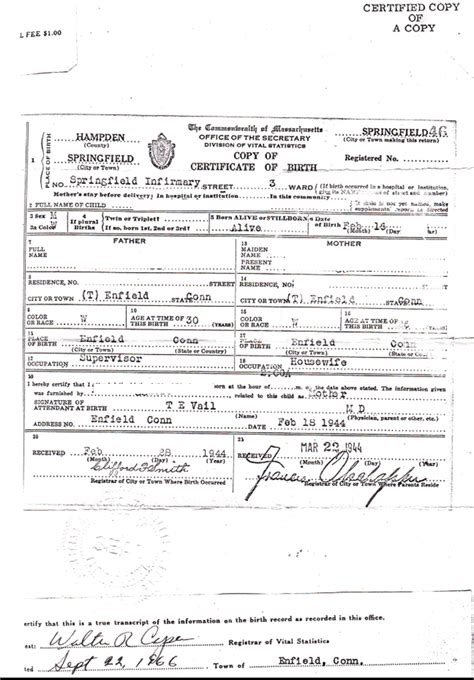 CERTIFIED COPY
OF
A COPY
L FEE $1.00
The Commonwealth of Massachusetts
OFFICE OF THE SECRETARY
DIVISION OF VITAL STATISTICS
COPY OF
CERTIFICATE OF BIRTH
PLACE OF BIRTH
1
HAMPDEN
(County)
SPRINGFIELD
(City or Town)
SPRINGFIELD 46
(City or Town making this return)
Registered No.
No. Springfield Infirmary STREET 3 WARD
(If birth occurred in a hospital or institution,
Mother's stay before delivery: In hospital or institution In this community
2 FULL NAME OF CHILD
3 Sex M
3a Color W
4 If plural Births
Twin or Triplet?
If so, born 1st, 2nd or 3rd?
5 Born ALIVE or STILLBORN
Alive
6 Date of Birth Feb 16
(Month) (Day) (Year)
7 FATHER
FULL NAME
13 MOTHER
MAIDEN NAME
PRESENT NAME
8 RESIDENCE, NO. STREET
CITY OR TOWN (T) Enfield STATE Conn
14 RESIDENCE, NO. STREET
CITY OR TOWN (T) Enfield STATE Conn
9 COLOR OR RACE W
10 AGE AT TIME OF THIS BIRTH 30 (YEARS)
15 COLOR OR RACE W
16 AGE AT TIME OF THIS BIRTH (YEARS)
11 PLACE OF BIRTH Enfield Conn
(City or Town) (State or Country)
17 PLACE OF BIRTH Enfield Conn
(City or Town) (State or Country)
12 OCCUPATION Supervisor
18 OCCUPATION Housewife
19
I hereby certify that I born at the hour of m. on the date above stated. The information given
was furnished by related to this child as Mother
SIGNATURE OF ATTENDANT AT BIRTH T E Vail M D
(Name) (Physician, parent or other, etc.)
ADDRESS NO. Enfield Conn DATE Feb 18 1944
20 RECEIVED Feb 28 1944
(Month) (Day) (Year)
Clifford F Smith
Registrar of City or Town Where Birth Occurred
21 RECEIVED MAR 23 1944
(Month) (Day) (Year)
Francis
Registrar of City or Town Where Parents Reside
ertify that this is a true transcript of the information on the birth record as recorded in this office.
est: Walter R Registrar of Vital Statistics
ted Sept 22, 1966 Town of Enfield, Conn.